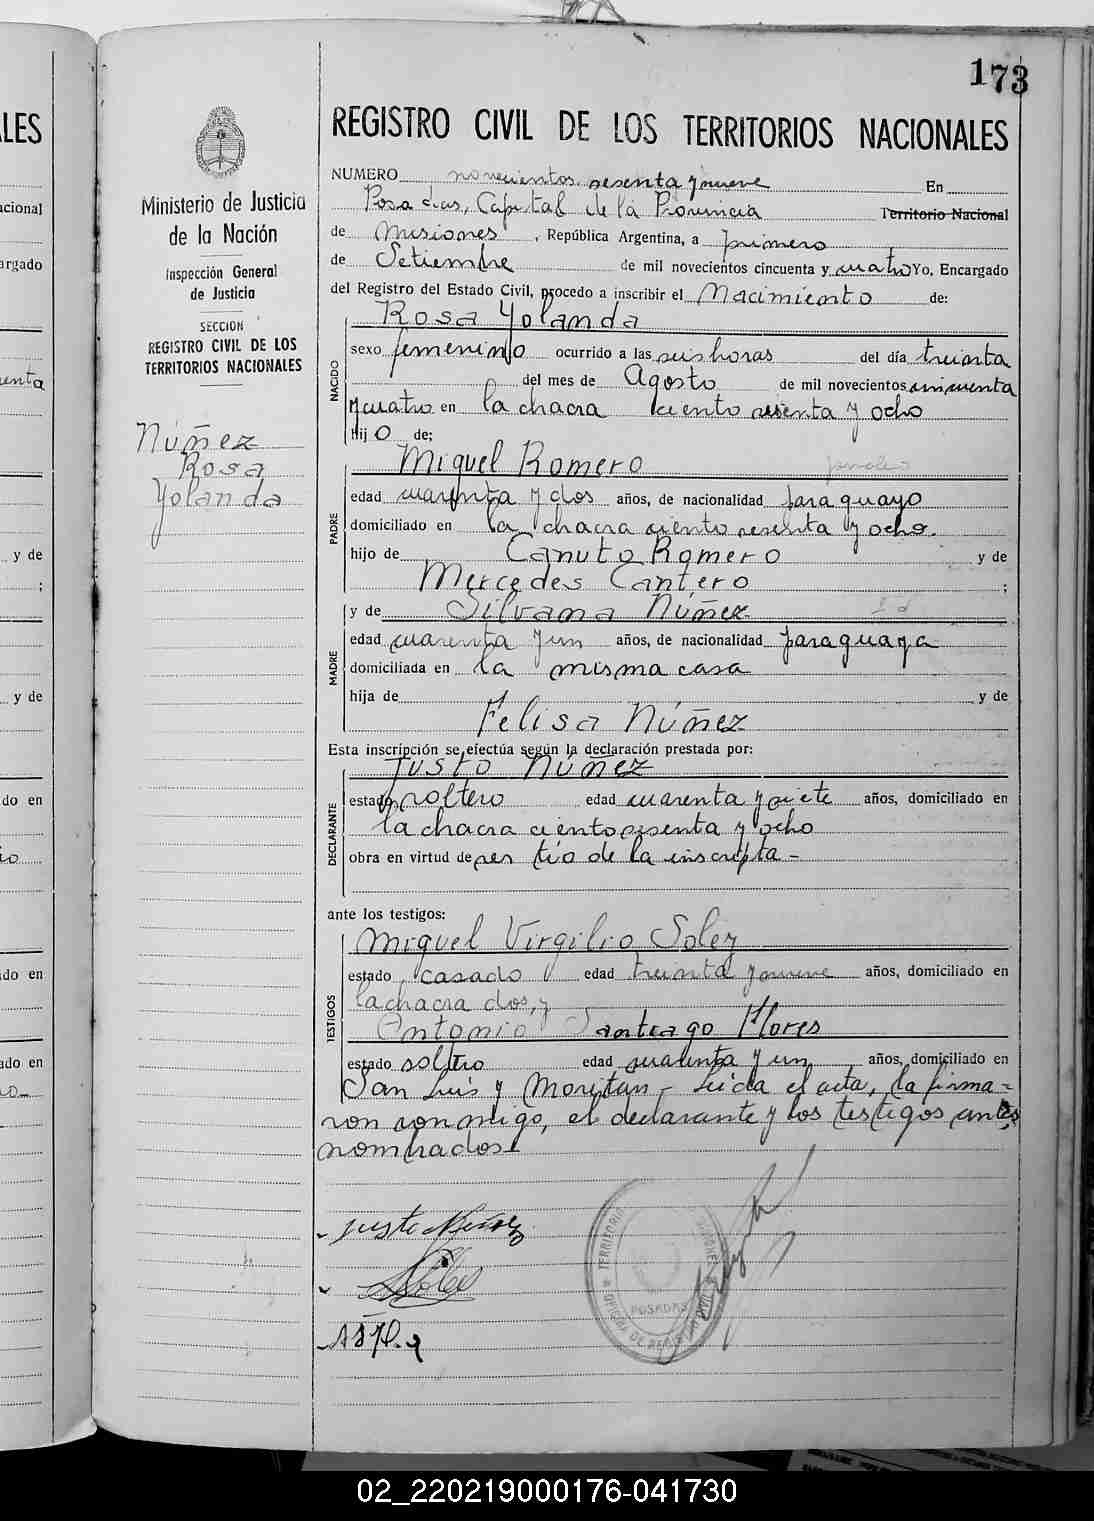 173
REGISTRO CIVIL DE LOS TERRITORIOS NACIONALES
Ministerio de Justicia
de la Nación
Inspección General
de Justicia
SECCIÓN
REGISTRO CIVIL DE LOS
TERRITORIOS NACIONALES
Núñez
Rosa
Yolanda
NUMERO novecientos sesenta y nueve En
Posadas, Capital de la Provincia Territorio Nacional
de Misiones, República Argentina, a primero
de Setiembre de mil novecientos cincuenta y cuatro Yo, Encargado
del Registro del Estado Civil, procedo a inscribir el Nacimiento de:
NACIDO
Rosa Yolanda
sexo femenino ocurrido a las seis horas del día treinta
del mes de Agosto de mil novecientos cincuenta
y cuatro en la chacra ciento sesenta y ocho
hijo de;
PADRE
Miguel Romero
edad cuarenta y dos años, de nacionalidad paraguayo
domiciliado en la chacra ciento sesenta y ocho.
hijo de Canuto Romero y de
Mercedes Cantero ;
MADRE
y de Silvana Núñez
edad cuarenta y un años, de nacionalidad paraguaya
domiciliada en la misma casa
hija de y de
Felisa Núñez
Esta inscripción se efectúa según la declaración prestada por:
DECLARANTE
Justo Núñez
estado soltero edad cuarenta y siete años, domiciliado en
la chacra ciento sesenta y ocho
obra en virtud de ser tío de la inscripta -
ante los testigos:
TESTIGOS
Miguel Virgilio Solez
estado casado edad treinta y nueve años, domiciliado en
la chacra dos, y
Antonio Santiago Flores
estado soltero edad cuarenta y un años, domiciliado en
San Luis y Moritan - Leída el acta, la firma=
ron conmigo, el declarante y los testigos antes
nombrados
Justo Núñez
POSADAS
02_220219000176-041730